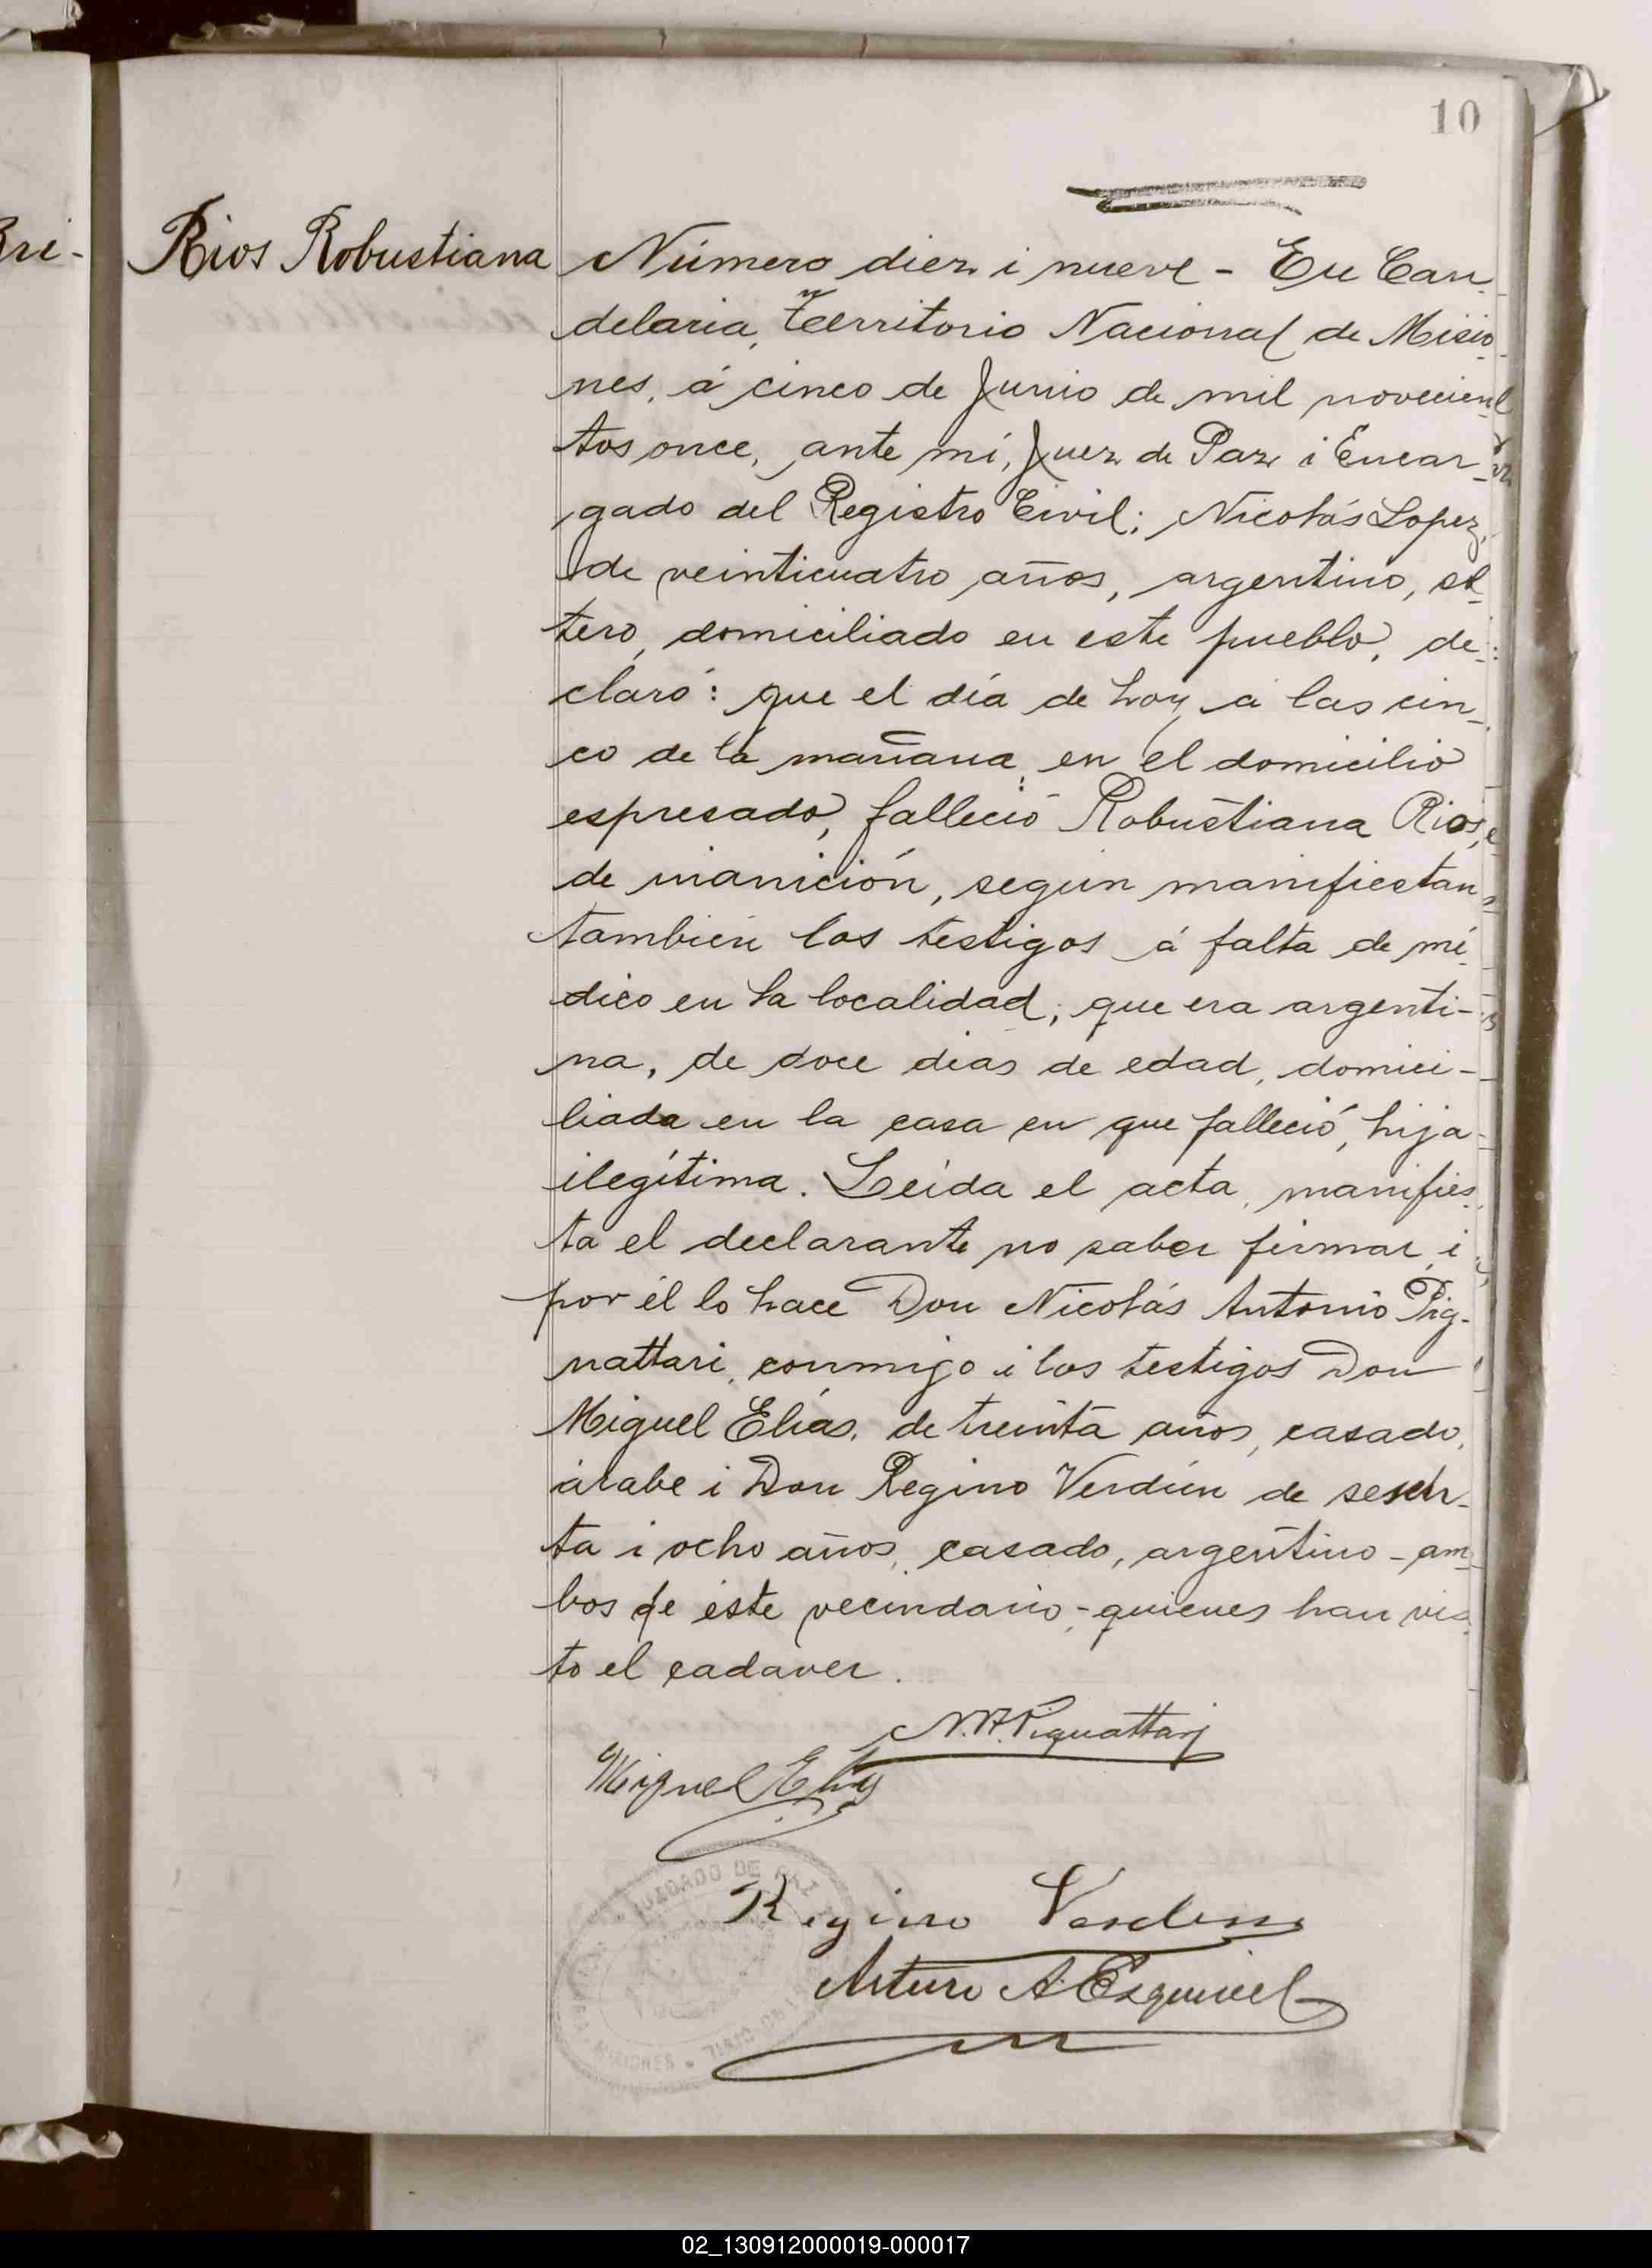 10
Rios Robustiana
Número diez i nueve - En Can-
delaria, Territorio Nacional de Misio-
nes, á cinco de Junio de mil novecien-
tos once, ante mí, Juez de Paz i Encar-
gado del Registro Civil; Nicolás Lopez,
de veinticuatro años, argentino, sol-
tero, domiciliado en este pueblo, de-
claró: que el día de hoy á las cin-
co de la mañana, en el domicilio
espresado, falleció Robustiana Rios,
de inanición, según manifiestan
también los testigos á falta de mé-
dico en la localidad; que era argenti-
na, de doce dias de edad, domici-
liada en la casa en que falleció, hija
ilegítima. Leida el acta, manifies-
ta el declarante no saber firmar, i
por él lo hace Don Nicolás Antonio Pig-
nattari, conmigo i los testigos Don
Miguel Elías, de treinta años, casado,
árabe i Don Regino Verdún de sesen-
ta i ocho años, casado, argentino - am-
bos de este vecindario, - quienes han vis-
to el cadaver.
N. A. Pignattari
Miguel Elias
JUZGADO DE PAZ
Regino Verdun
Arturo A. Esquivel
MISIONES
02_130912000019-000017